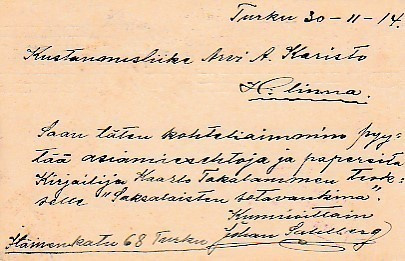 Turku 30-11-14.
Kustannusliike Arvi A. Karisto
H:linna.
Saan täten kohteliaimmin pyy-
tää asiamiesehtoja ja papereita
Kirjailija Kaarlo Takalammen teok-
selle "Saksalaisten sotavankina".
Kunnioittain
Johan
Hämeenkatu 68 Turku